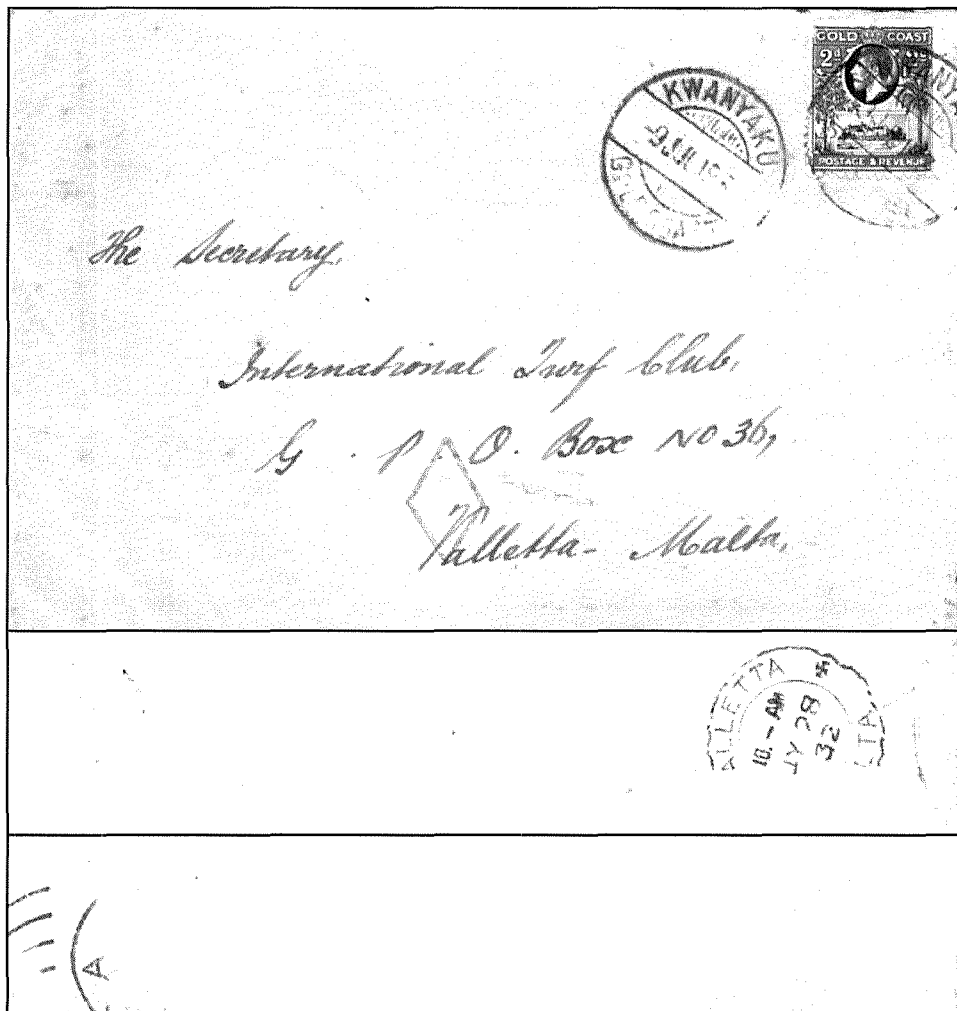 GOLD COAST
2ᴰ
POSTAGE & REVENUE
KWANYAKU
The Secretary,
International Turf Club,
G. P. O. Box No 36,
Valletta - Malta,
ALLETTA
10.- AM
JY 28
32
LTA
A